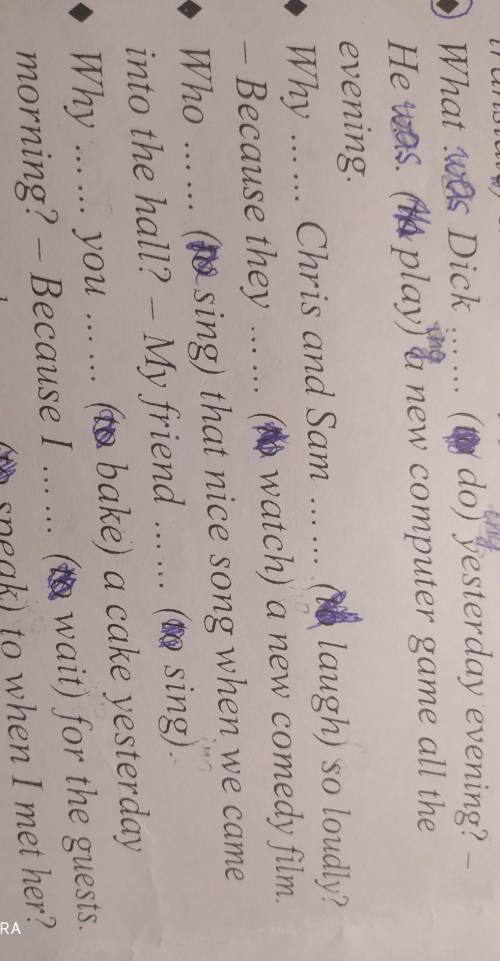 ◆ What .was Dick ... ... (to do)ing yesterday evening? –
He was. (to play)ing a new computer game all the
evening.
◆ Why ... ... Chris and Sam ... ... (to laugh) so loudly?
– Because they ... ... (to watch) a new comedy film.
◆ Who ... ... (to sing) that nice song when we came
into the hall? – My friend ... ... (to sing).
◆ Why ... ... you ... ... (to bake) a cake yesterday
morning? – Because I ... ... (to wait) for the guests.
(to speak) to when I met her?
RA